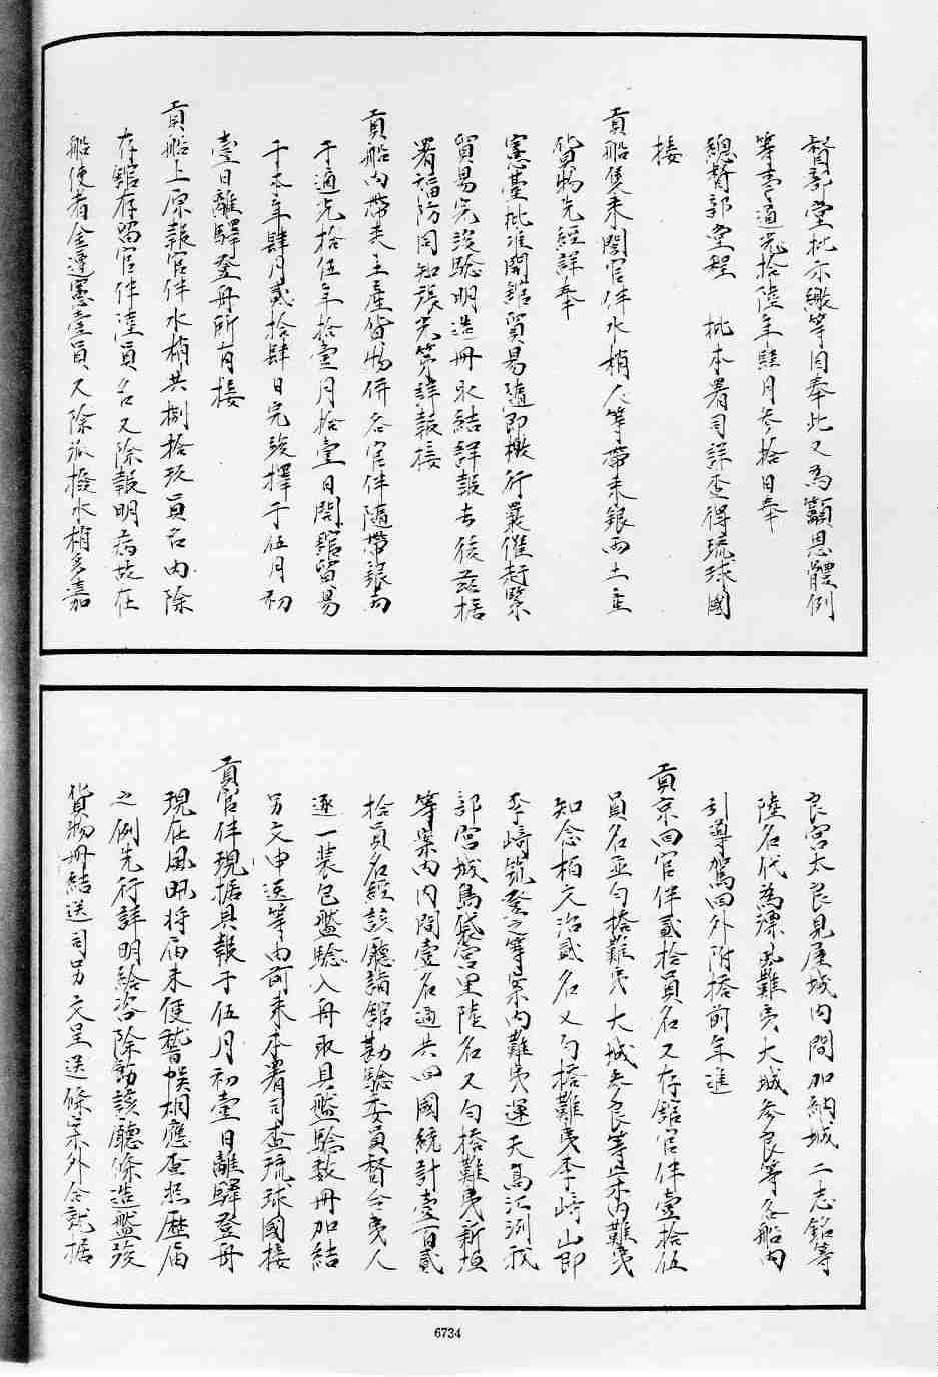 督部堂批示繳等因奉此又為籲恩體例
等事道光拾陸年肆月叁拾日奉
總督部堂程 批本署司詳查得琉球國
接
貢船隻來閩官伴水梢人等帶來銀兩土產
貨物先經詳奉
憲臺批准開館貿易隨即檄行嚴催趕緊
貿易完竣驗明造冊取結詳報去後茲據
署福防同知張 第詳報接
貢船內帶來土產貨物併各官伴隨帶銀兩
于道光拾伍年拾壹月拾壹日開館貿易
于本年肆月貳拾肆日完竣擇于伍月初
壹日離驛登舟所有接
貢船上原報官伴水梢共捌拾玖員名內除
存館存留官伴陸員名又除報明病故在
船使者金 憲壹員又除派撥水梢 嘉
良宮太良見屋城內間加納城二志銘等
陸名代為漂風難夷大城參良等各船內
引導駕回外附搭前年進
貢京回官伴貳拾員名又存館官伴壹拾伍
員名並勻搭難夷大城參良等 案內難夷
知念柏元治貳名又勻搭難夷李崎山即
李崎筑登之等案內難夷運天高江洲我
部宮城島袋宮里陸名又勻搭難夷新垣
等案內內間壹名通共回國統計壹百貳
拾員名經該廳詣館勘驗委員督令夷人
逐一裝包盤驗入舟取具盤驗數冊加結
另文申送等由前來本署司查琉球國接
貢官伴現據具報于伍月初壹日離驛登舟
現在風汛將屆未便稽悞相應查照歷屆
之例先行詳明給咨除飭該廳條造盤驗
貨物冊結送司另文呈送條案外合就據
6734